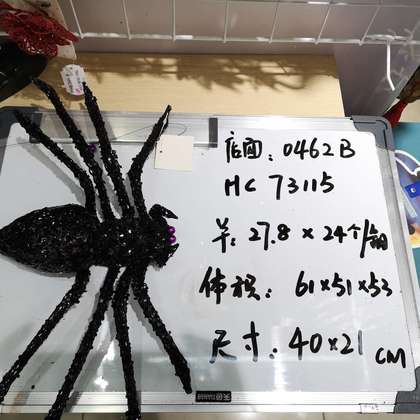 店面: 0462B
HC 73115
羊: 27.8 × 24个/箱
体积: 61×51×53
尺寸: 40×21 CM